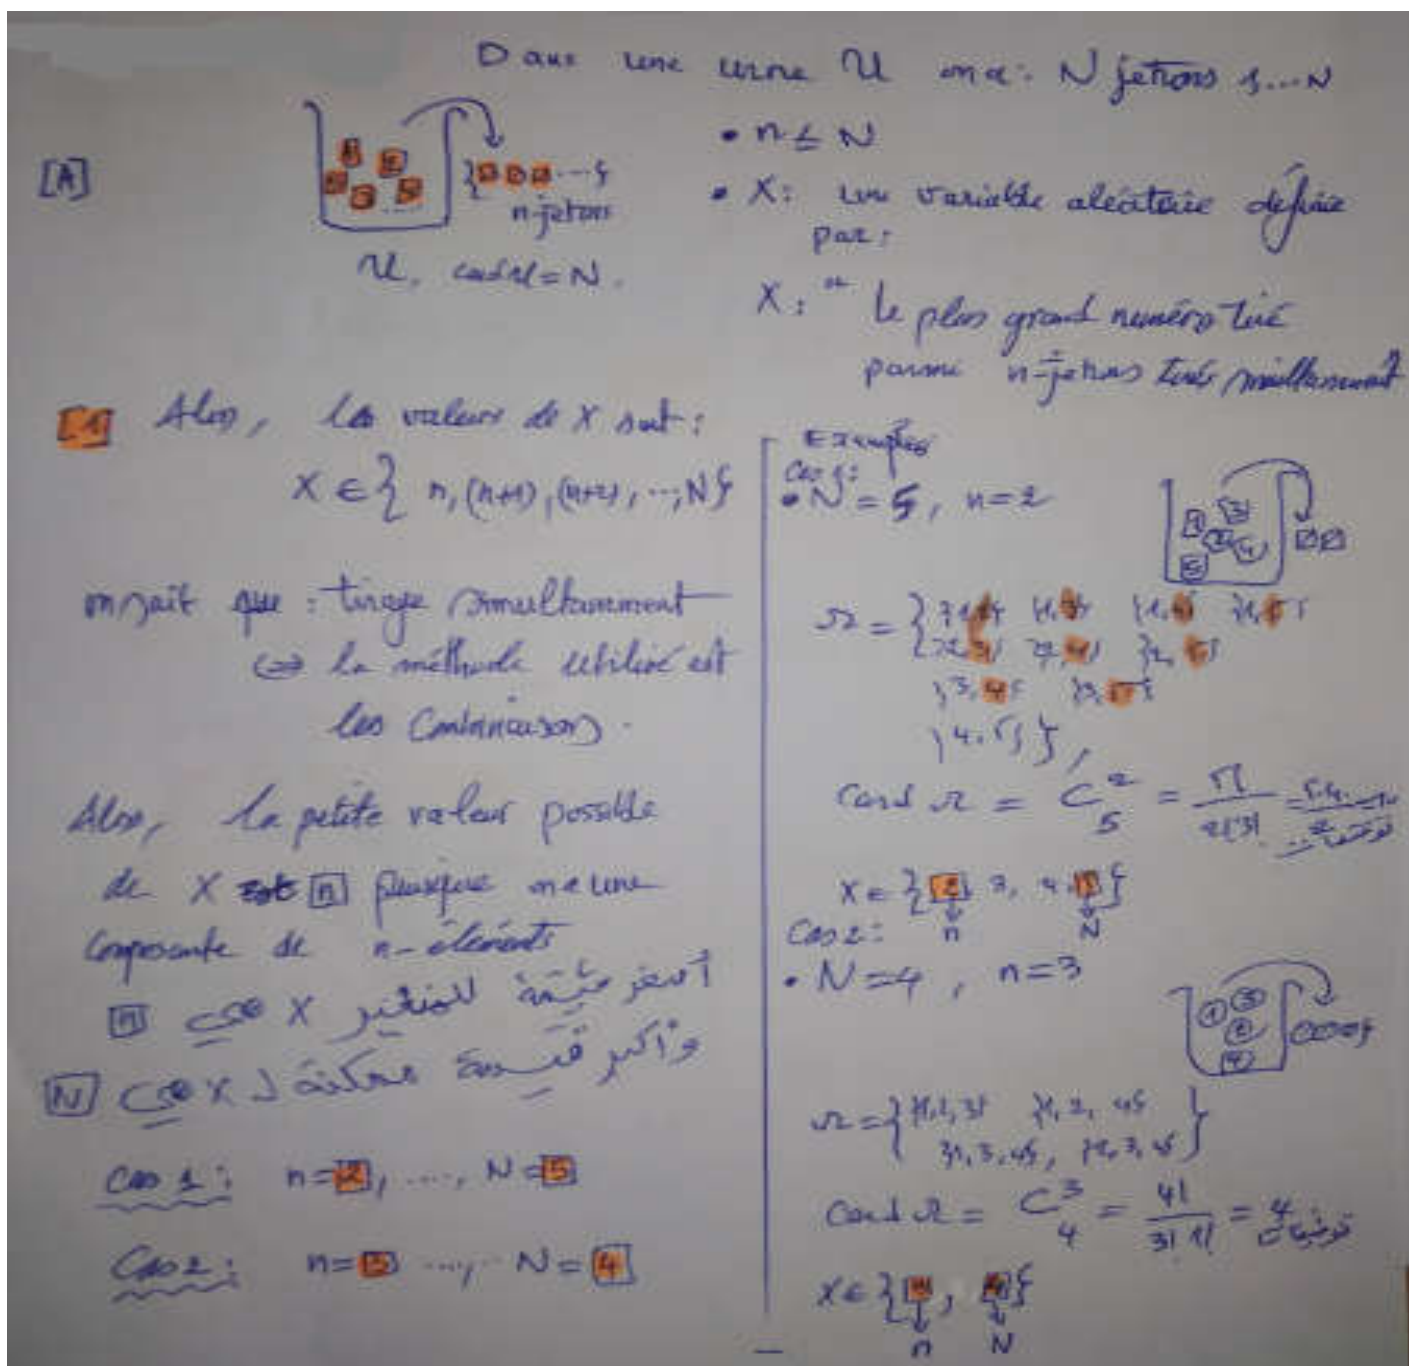 Dans une urne U on a: N jetons 1...N
[A]
n-jetons
U, card U = N.
• n ≤ N
• X: une variable aléatoire définie
par:
X: " le plus grand numéro tiré
parmi n-jetons tirés
[1] Alors, les valeurs de X sont:
X ∈ { n, (n+1), (n+2), ..., N }
on sait que : tirage simultanment
⇔ la méthode utilisé est
les Combinaisons.
Alors, la petite valeur possible
de X est n puisque on a une
composante de n-éléments
أصغر قيمة للمتغير X هي n
وأكبر قيمة ممكنة لـ X هي N
Cas 1: n=2, ...., N=5
Cas 2: n=3 ...., N=4
Examples
Cas 1:
• N=5, n=2
1 3 2 4 5
Ω = { {1,2} {1,3} {1,4} {1,5}
{2,3} {2,4} {2,5}
{3,4} {3,5}
{4,5} },
Card Ω = C₅² = 5!/2!3! =
X ∈ { 2, 3, 4, 5 }
n N
Cas 2:
• N=4, n=3
1 3 2 4
Ω = { {1,2,3} {1,2,4}
{1,3,4}, {2,3,4} }
Card Ω = C₄³ = 4!/3!1! = 4
X ∈ { 3, 4 }
n N